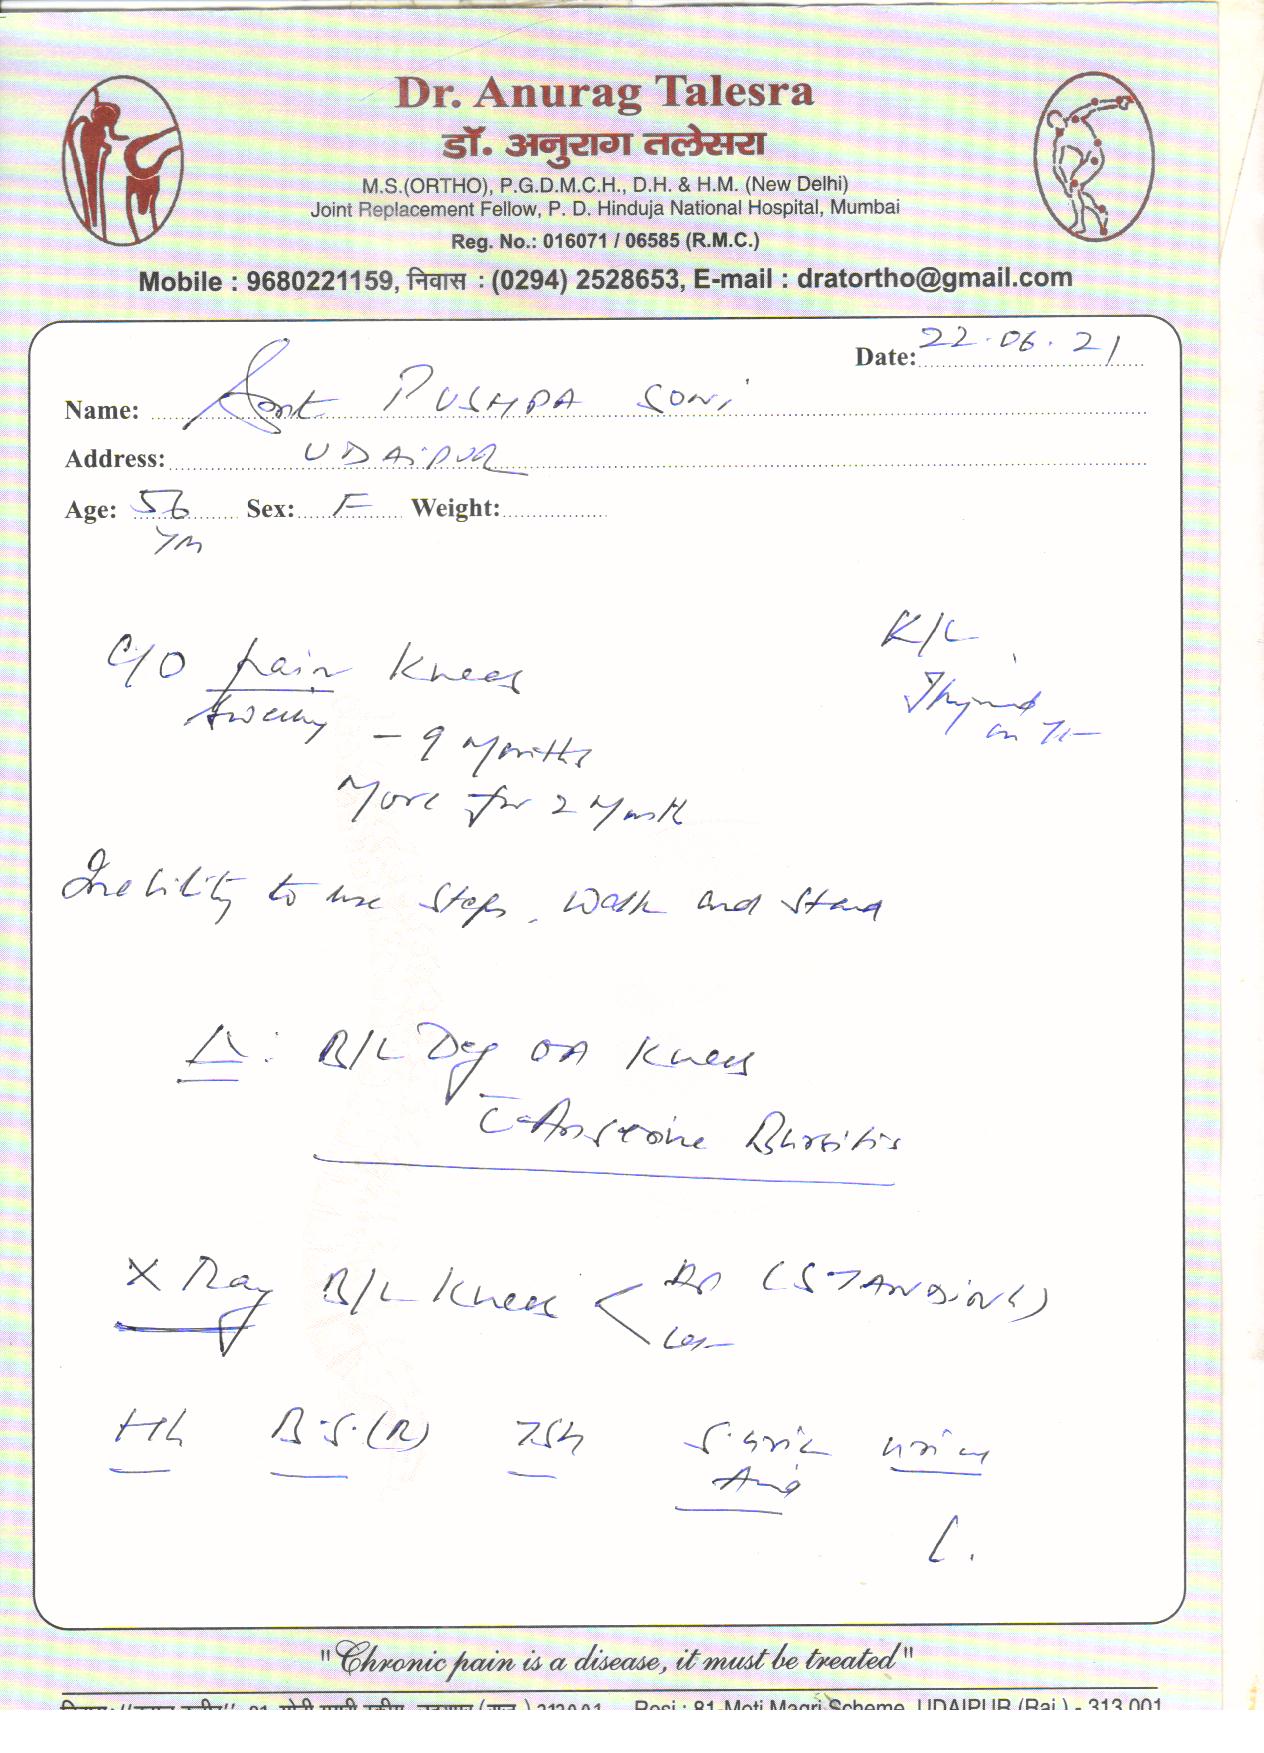 Dr. Anurag Talesra
डॉ. अनुराग तलेसरा
M.S.(ORTHO), P.G.D.M.C.H., D.H. & H.M. (New Delhi)
Joint Replacement Fellow, P. D. Hinduja National Hospital, Mumbai
Reg. No.: 016071 / 06585 (R.M.C.)
Mobile : 9680221159, निवास : (0294) 2528653, E-mail : dratortho@gmail.com
Date: 22.06.21
Name: Smt PUSHPA SONI
Address: UDAIPUR
Age: 56 Sex: F Weight:
Yrs
K/C
Thyroid
on
C/O pain Knees
- 9 Months
More for 2 Month
Inability to use steps, walk and stand
Δ: B/L Deg OA Knees
c̄ Anserine Bursitis
X Ray B/L Knees < AP (STANDING)
Lat
Hb B.S.(R) TSH S. uric urine
Acid
"Chronic pain is a disease, it must be treated"
Resi : 81-Moti Magri Scheme, UDAIPUR (Raj.) - 313 001